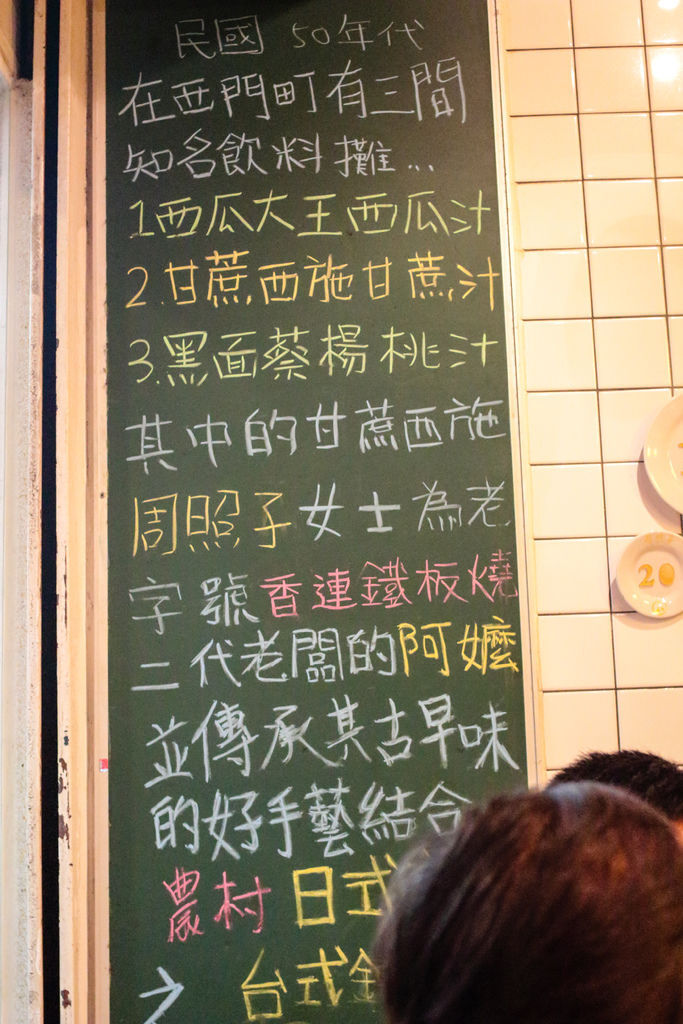 民國 50年代
在西門町有三間
知名飲料攤...
1西瓜大王西瓜汁
2.甘蔗西施甘蔗汁
3.黑面蔡楊桃汁
其中的甘蔗西施
周照子女士為老
字號香連鐵板燒
二代老闆的阿嬤
並傳承其古早味
的好手藝結合
農村日式
之 台式鐵
20